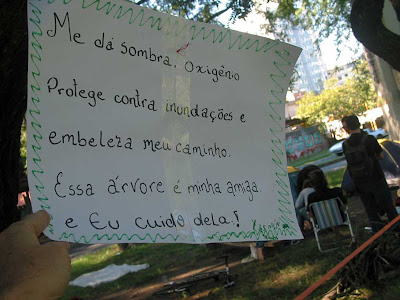 Me dá sombra, oxigênio
Protege contra inundações e
embeleza meu caminho.
Essa árvore é minha amiga
e Eu cuido dela!